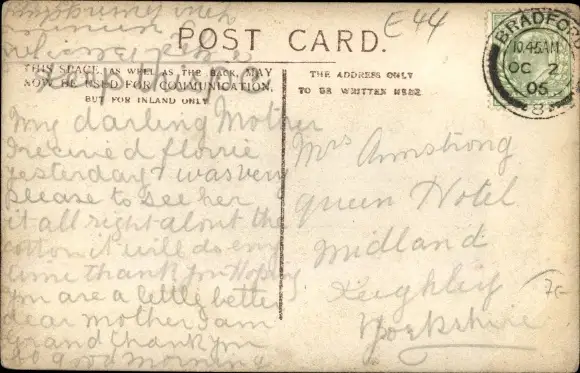 E44
POST CARD.
THIS SPACE, AS WELL AS THE BACK, MAY
NOW BE USED FOR COMMUNICATION,
BUT FOR INLAND ONLY.
THE ADDRESS ONLY
TO BE WRITTEN HERE
BRADFORD
10.45AM
OC 2
06
8
My darling Mother
I recived florrie
yesterday & was very
please to see her
it all right about the
cotton it will do eny
time thank you Hoping
you are a little better
dear mother I am
grand thank you
so good morning
Mrs Armstrong
queen Hotel
Midland
Keighley
Yorkshire